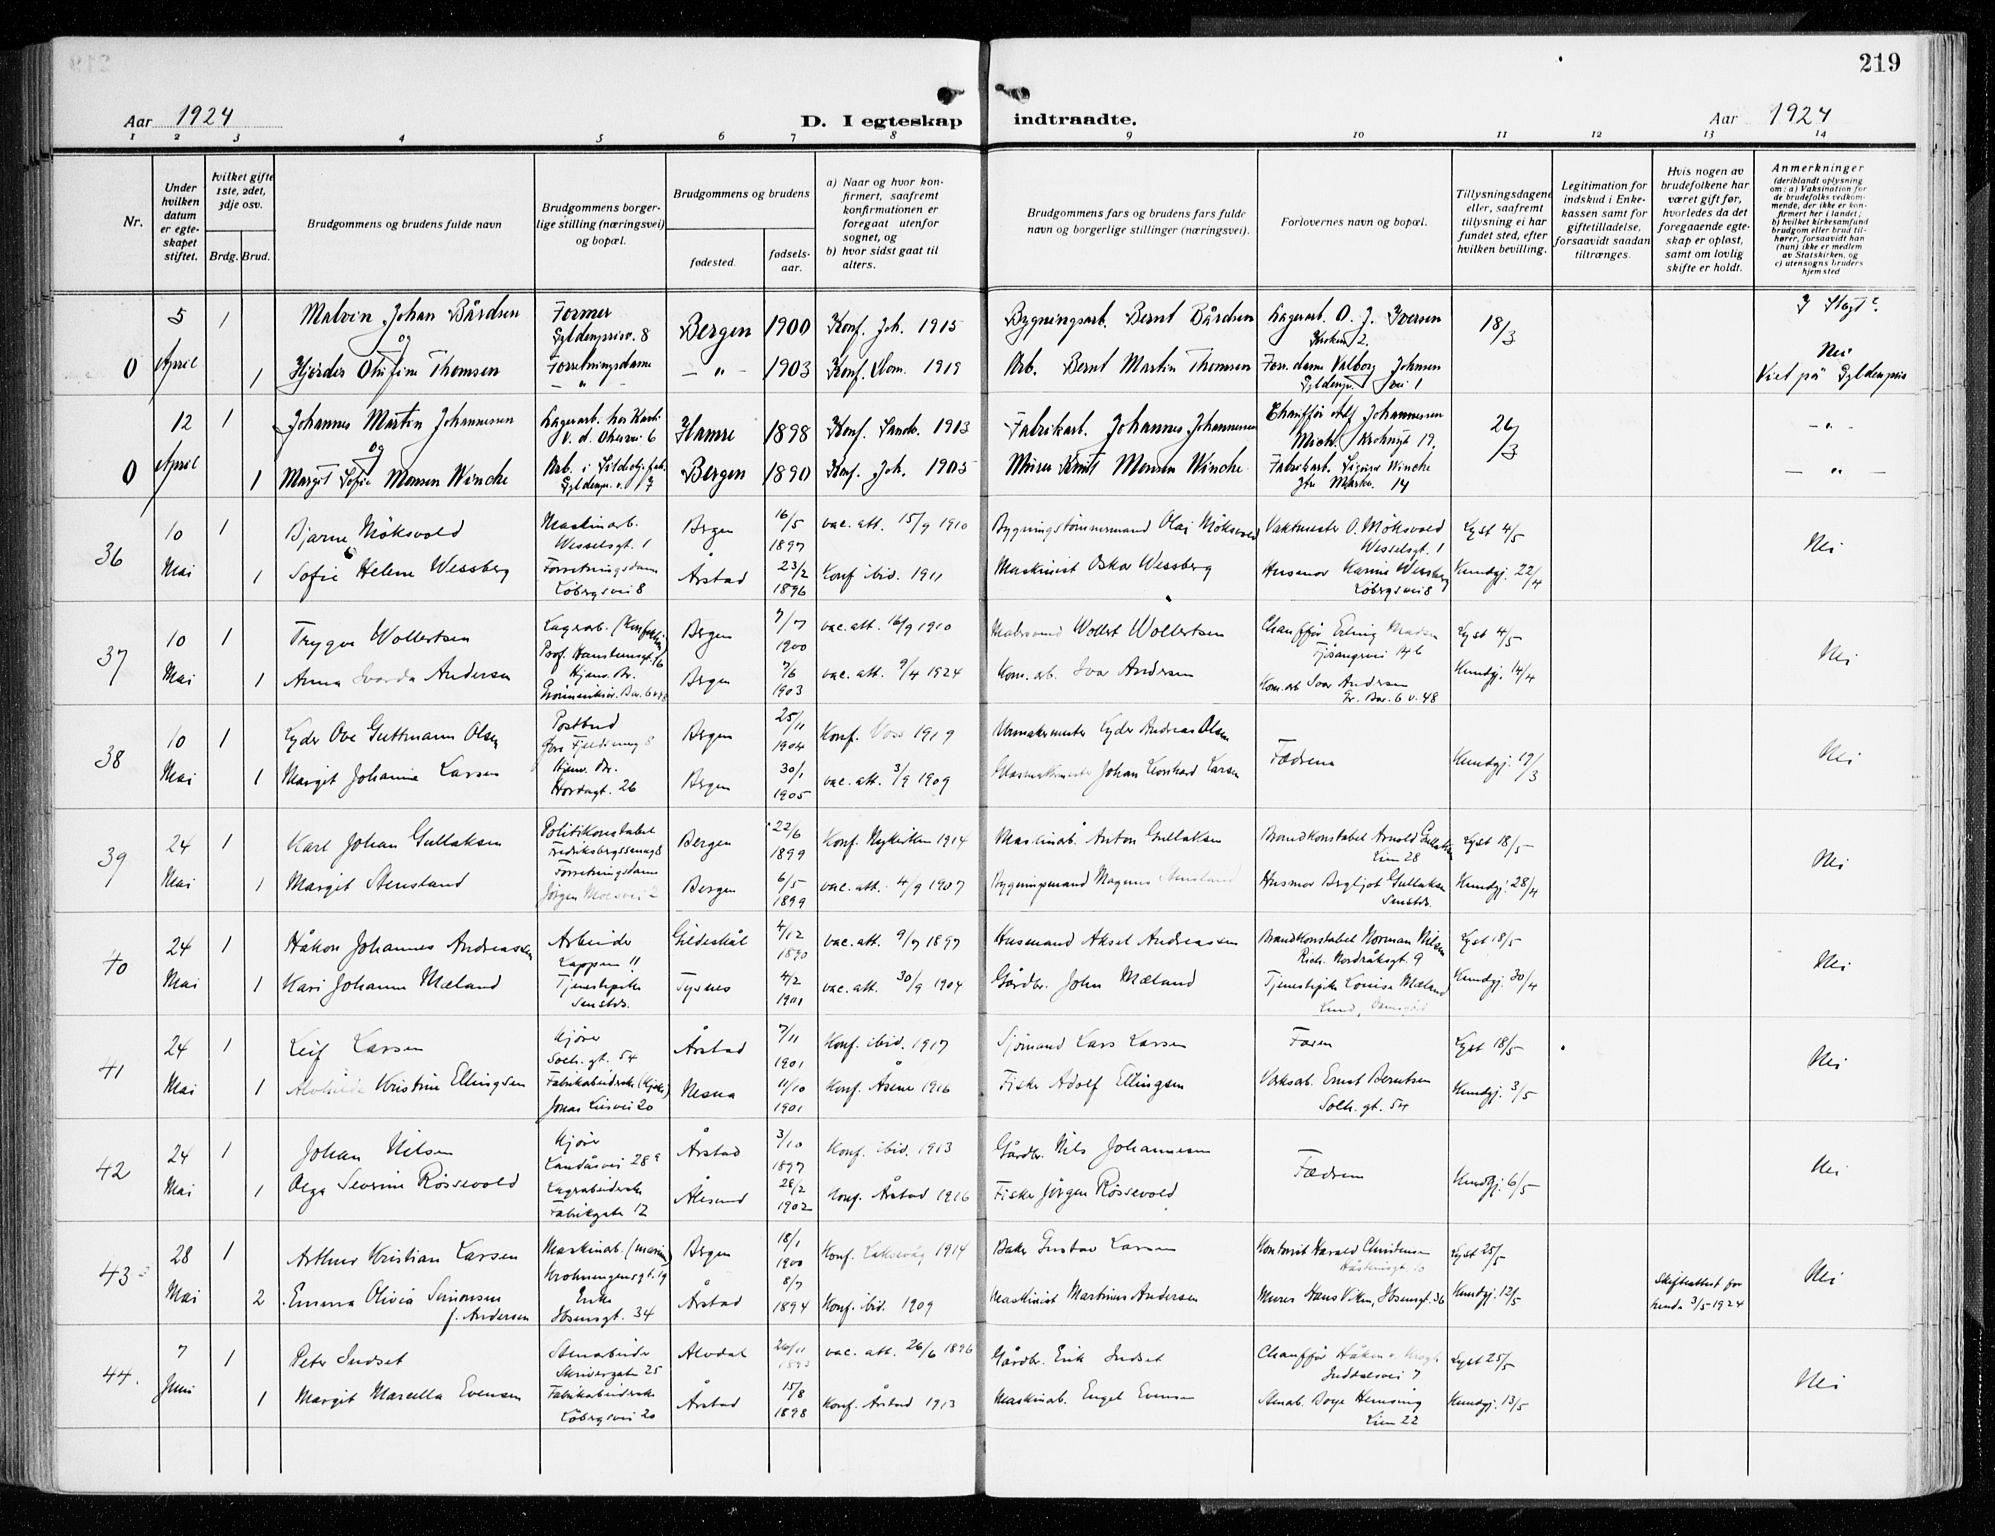 219
Aar 1924
D. I egteskap indtraadte.
Aar 1924
1 2 3 4 5 6 7 8 9 10 11 12 13 14
Nr.
Under hvilken datum er egteskapet stiftet.
hvilket gifte 1ste, 2det, 3dje osv.
Brdg. Brud.
Brudgommens og brudens fulde navn
Brudgommens borgerlige stilling (næringsvei) og bopæl.
Brudgommens og brudens
fødested. fødselsaar.
a) Naar og hvor konfirmert, saafremt konfirmationen er foregaat utenfor sognet, og
b) hvor sidst gaat til alters.
Brudgommens fars og brudens fars fulde navn og borgerlige stillinger (næringsvei).
Forlovernes navn og bopæl.
Tillysningsdagene eller, saafremt tillysning ei har fundet sted, efter hvilken bevilling.
Legitimation for indskud i Enkekassen samt for giftetilladelse, forsaavidt saadan tiltrænges.
Hvis nogen av brudefolkene har været gift før, hvorledes da det foregaaende egteskap er opløst, samt om lovlig skifte er holdt.
Anmerkninger
(deriblandt oplysning om: a) Vaksination for de brudefolks vedkommende, der ikke er konfirmert her i landet; b) hvilket kirkesamfund brudgom eller brud tilhører, forsaavidt han (hun) ikke er medlem av Statskirken, og c) utensogns bruders hjemsted
0 5 April 1 Malvin Johan Bårdsen Former Gyldenprisv. 8 Bergen 1900 Konf. Joh. 1915 Bygningsarb. Bernt Bårdsen Lagerarb. O. J. Iversen 18/3
og
1 Hjørdis Thomsen Forretningsdame — " — — " — 1903 Konf. Dom. 1919 Arb. Bernt Martin Thomsen Forr.dame Valborg Johnsen Gyldenpr. vei 1 Nei Viet på Gyldenpris
0 12 April 1 Johannes Martin Johannesen Hamre 1898 Konf. Sandv. 1913 Fabrikarb. Johannes Johannesen Chauffør Johannesen Mich. Krohnsgt 19. 26/3 — " —
og
1 Margit Sofie Monsen Wincke Bergen 1890 Konf. Joh. 1905 Murer Knut Monsen Wincke Fabrikarb. Sigurd Wincke 14 — " —
36 10 Mai 1 Bjarne Möksvold Maskinarb. Wesselsgt. 1 Bergen 16/5 1897 vac. att. 15/9 1910 Bygningstømmermand Olaj Möksvold Vaktmester O. Möksvold Wesselsgt. 1 Lyst 4/5 Nei
1 Sofie Helene Wessberg Forretningsdame Løbergsvei 8 Årstad 23/2 1896 Konf ibid. 1911 Maskinist Oskar Wessberg Husmor Karine Wessberg Løbergsvei 8 Kundgj. 22/4
37 10 Mai 1 Trygve Wollertsen Lagerarb. Prof. Hansteensgt. 16 Bergen 7/7 1900 vac. att. 16/9 1910 Wollert Wollertsen Chauffør Erling Madsen Fjøsangervei 146 Lyst 4/5 Nei
1 Anna Andersen Hjemv. Br. Bergen 7/6 1903 vac. att. 9/4 1924 Kom. arb. Ivar Andersen Kom. arb Ivar Andersen Br. Bar. 6 v. 48 Kundgj. 14/4
38 10 Mai 1 Lyder Ove Guttmann Olsen Postbud Bergen 25/11 1904 Konf. Voss 1919 Urmakermester Lyder Andreas Olsen Fædrene Kundgj. 19/3 Nei
1 Margit Johanne Larsen Hjemv. Br. Hordagt. 26 Bergen 30/1 1905 vac. att. 3/9 1909 Johan Leonhard Larsen
39 24 Mai 1 Karl Johan Gullaksen Politikonstabel Fredriksbergssmug 8 Bergen 22/6 1899 Konf. Nykirken 1914 Maskinarb. Anton Gullaksen Brandkonstabel Arnold Gullaksen Lien 28 Lyst 18/5 Nei
1 Margit Stensland Forretningsdame Jørgen Moesvei 2 Bergen 6/5 1899 vac. att. 4/9 1907 Bygningsmand Magnus Stensland Husmor Bergljot Gullaksen Smstds. Kundgj. 28/4
40 24 Mai 1 Håkon Johannes Andreassen Arbeider Lappen 11 Gildeskål 4/12 1890 vac. att. 9/7 1897 Husmand Aksel Andreassen Brandkonstabel Norman Nilsen Rich. Nordråksgt. 9 Lyst 18/5 Nei
1 Kari Johanne Mæland Tjenestepike Smstds. Tysnes 4/2 1901 vac. att. 30/9 1904 Gårdbr. John Mæland Tjenestepike Louise Mæland Lund, Damsgård Kundgj. 30/4
41 24 Mai 1 Leif Larsen Kjører Solh. gt. 54 Årstad 7/11 1901 Konf. ibid. 1917 Sjømand Lars Larsen Faren Lyst 18/5 Nei
1 Alvhilde Kristine Ellingsen Fabrikarbeiderske Jonas Liesvei 20 Nesna 11/10 1901 Konf. Åsene 1916 Fisker Adolf Ellingsen Verksarb. Ernst Berntsen Solh. gt. 54 Kundgj. 3/5
42 24 Mai 1 Johan Nilsen Kjører Landåsvei 28 a Årstad 3/10 1897 Konf. ibid. 1913 Gårdbr. Nils Johannesen Fædrene Kundgj. 6/5 Nei
1 Olga Severine Røssevold Lagerarbeiderske Fabrikgaten 12 Ålesund 28/2 1902 Konf. Årstad 1916 Fisker Jørgen Røssevold
43 28 Mai 1 Arthur Kristian Larsen Maskinarb. (marinen) Krohnengensgt. 19 Bergen 18/1 1900 Konf. Laksevåg 1914 Baker Gustav Larsen Kontorist Harald Christensen Lyst 25/5 Nei
2 Emma Olivia Simonsen f. Andersen Enke Ibsensgt. 34 Årstad 8/7 1894 Konf. ibid. 1909 Maskinist Martinus Andersen Murer Hans Viken, Ibsensgt. 36 Kundgj. 12/5 Skifteattest for 3/5 1924
44. 7 Juni 1 Peter Indset Stenarbeider Skrivergaten 25 Alvdal 26/11 1893 vac. att. 26/6 1896 Gårdbr. Erik Indset Chauffør Håkon v. Krogh Inddalsvei 7 Lyst 25/5 Nei
1 Margit Marcella Evensen Fabrikarbeiderske Løbergsvei 20 Årstad 15/8 1898 Konf. Årstad 1913 Maskinarb. Engel Evensen Stenarb. Borge Henning Lien 22 Kundgj. 13/5